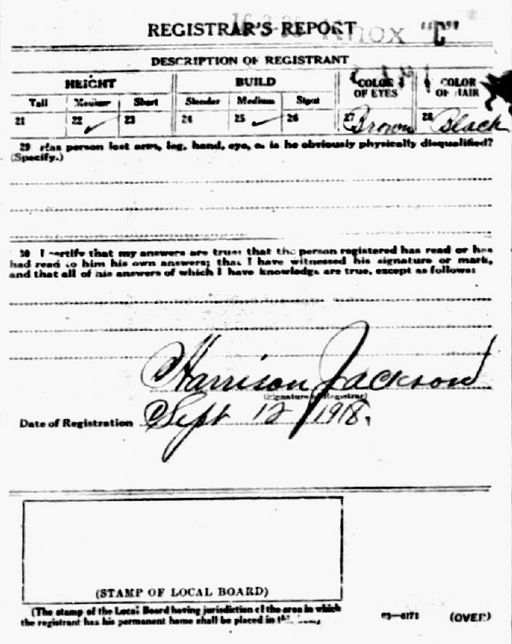 REGISTRAR'S REPORT Knox "C"
DESCRIPTION OF REGISTRANT
HEIGHT BUILD COLOR OF EYES COLOR OF HAIR
Tall Medium Short Slender Medium Stout
21 22 ✓ 23 24 25 ✓ 26 27 Brown 28 Black
29 Has person lost arm, leg, hand, eye, or is he obviously physically disqualified?
(Specify.)
30 I certify that my answers are true; that the person registered has read or has
had read to him his own answers; that I have witnessed his signature or mark,
and that all of his answers of which I have knowledge are true, except as follows:
Harrison Jackson
(Signature of Registrar)
Date of Registration Sept 12 1918.
(STAMP OF LOCAL BOARD)
(The stamp of the Local Board having jurisdiction of the area in which
the registrant has his permanent home shall be placed in
03—6171 (OVER)